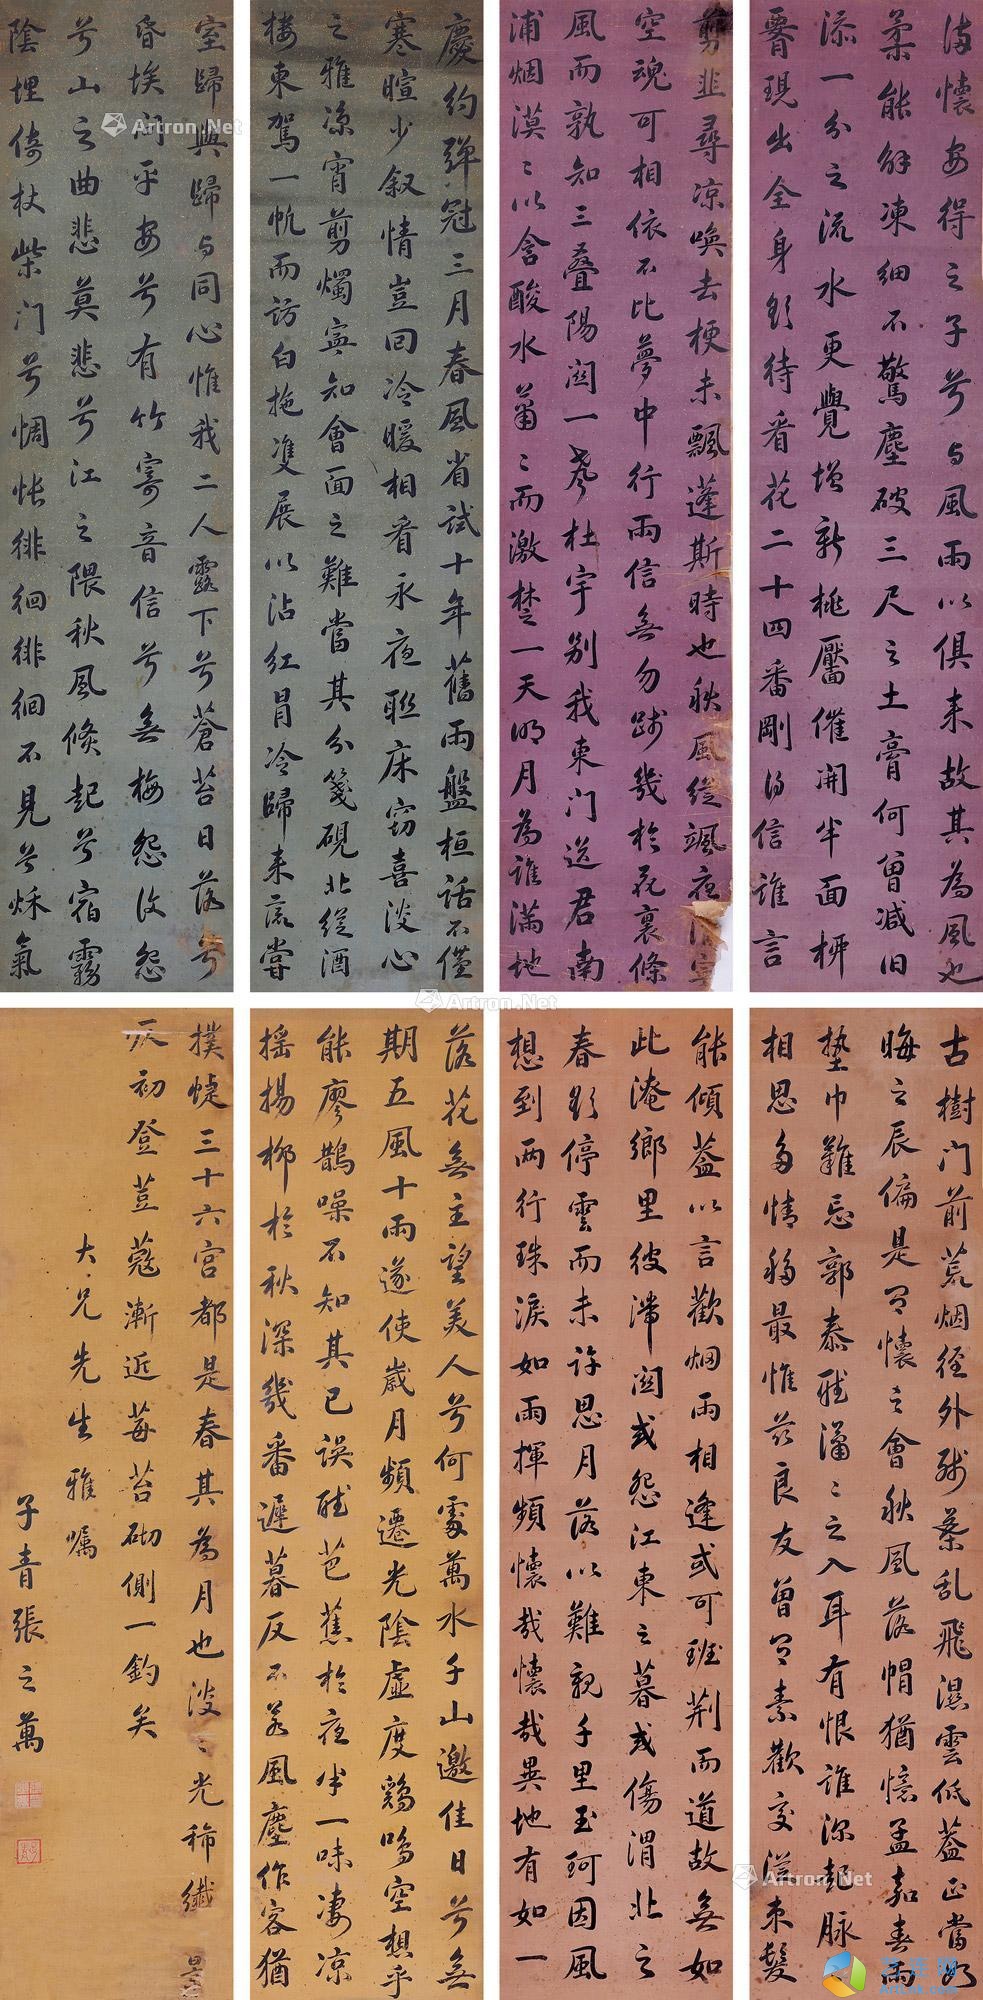 海懷安得之子兮与風雨以俱来故其為風也
柔能解凍細不驚塵破三尺之土膏何曾减旧
添一分之流水更覺增新桃靨催開半面柳
看現出全身彩待看花二十四番剛信誰言
剪韭尋凉喚去梗未飄蓬斯時也秋風縱颯夜
空魂可相依不比夢中行雨信無勿踐幾於花裏條
風而孰知三叠陽関一声杜宇别我東门送君南
浦烟漠〻以含酸水蕭〻而激楚一天明月為誰滿地
慶約彈冠三月春風省試十年舊雨盤桓話不僅
寒暄少叙情豈回冷暖相看永夜联床窃喜淡心
之雅凉宵剪燭寅知會面之難當其分箋硯北縱酒
棲東駕一帆而訪白拖雙展以沾紅冒冷歸来高嘗
室歸與歸与同心惟我二人露下兮蒼苔日落兮
昏埃问平安兮有竹寄音信兮無梅怨復怨
兮山之曲悲莫悲兮江之隈秋風倏起兮宿霧
陰埋倚杖柴门兮惆悵徘徊徘徊不見兮秋氣
古樹门前荒烟径外残葉乱飛濕雲低蓋正當如
晦之辰偏是有懷之會秋風落帽猶憶孟嘉春雨
墊巾難忘郭泰雅瀟〻之入耳有恨誰深起脉
相思多情移最惟兹良友曾有素歡交從束髮
能傾蓋以言歡烟雨相逢或可班荆而道故無如
此淹鄉里彼滞関或怨江東之暮或傷渭北之
春彩停雲而未許思月落以難親千里玉珂因風
想到两行珠淚如雨揮頻懷哉懷哉異地有如一
落花無主望美人兮何處萬水千山邀佳日兮無
期五風十雨遂使歲月頻遷光陰虛度鷄鳴空想乎
能廖鵲噪不知其已誤聽芭蕉於夜半一味凄凉
摇揚柳於秋深幾番遲暮反不若風塵作客猶
撲蜨三十六宮都是春其為月也淡〻光稀纖〻
初登荳蔻漸近莓苔砌側一鈎矣
大兄先生雅嘱
子青張之萬
Artron.Net
Artron.Net
Artron.Net
Artron.Net
Artron.Net